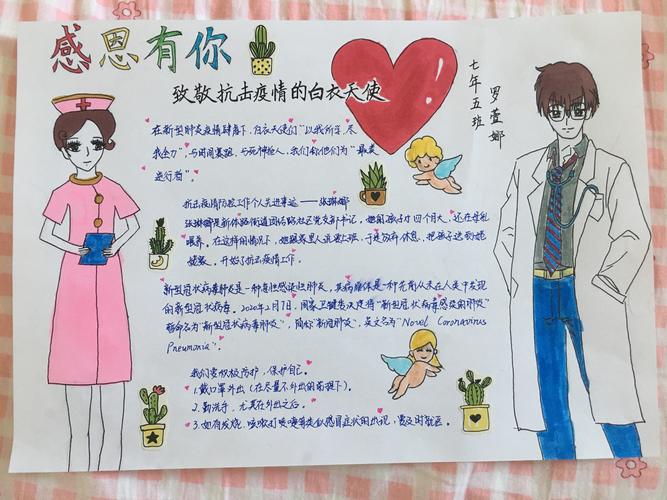 感恩有你
致敬抗击疫情的白衣天使
七年五班
罗萱娜
在新型肺炎疫情肆虐下，白衣天使们“以我所学，尽
我全力”，与时间赛跑，与死神抢人，我们称他们为“最美
逆行者”。
抗击疫情防控工作个人先进事迹——张琳娜
张琳娜是新体路街道团结路社区党支部书记，她的孩子才四个月大，还在母乳
喂养。在这样的情况下，她跟家里人说要上班，于是放弃休息，把孩子送到姥
姥家，开始了抗击疫情工作。
新型冠状病毒肺炎是一种急性感染性肺炎，其病原体是一种先前从未在人类中发现
的新型冠状病毒。2020年2月7日，国家卫健委决定将“新型冠状病毒感染的肺炎”
暂命名为“新型冠状病毒肺炎”，简称“新冠肺炎”，英文名为“Novel Coronavirus
Pneumonia”。
我们要积极防护，保护自己。
1.戴口罩外出（在尽量不外出的前提下）。
2.勤洗手，尤其在外出之后。
3.如有发烧，咳嗽打喷嚏等类似感冒症状的出现，要及时就医。